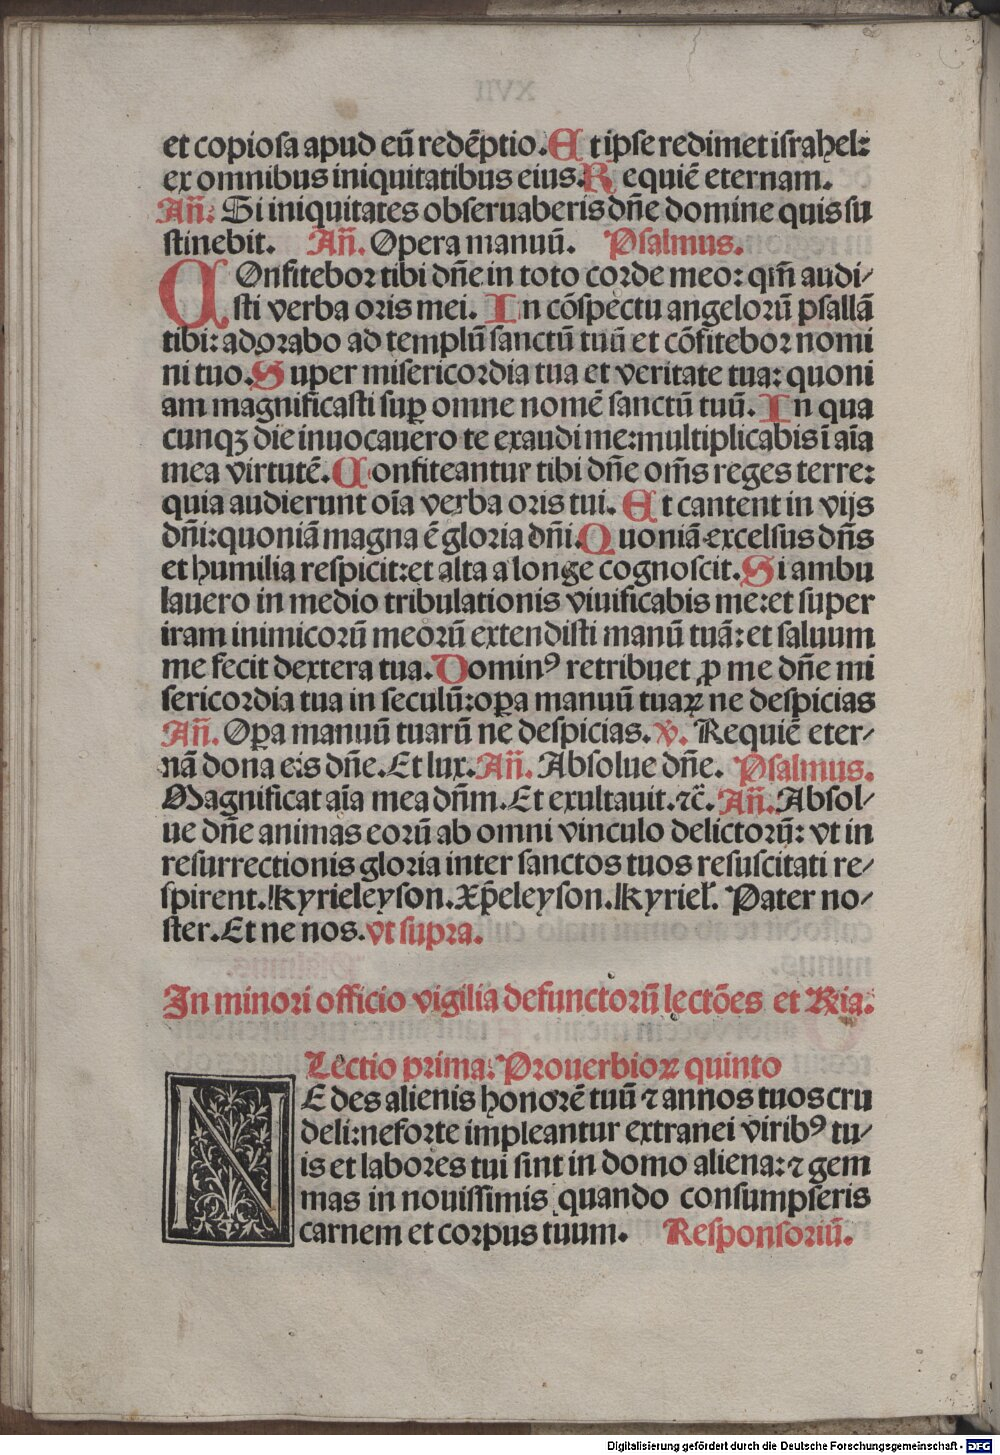 et copiosa apud eū redēptio. Et ipse redimet israhel:
ex omnibus iniquitatibus eius. Requiē eternam.
Añ. Si iniquitates obseruaberis dñe domine quis su
stinebit. Añ. Opera manuū. Psalmus.
COnfitebor tibi dñe in toto corde meo: qm̄ audi/
sti verba oris mei. In cōspectu angelorū psallā
tibi: adorabo ad templū sanctū tuū et cōfitebor nomi
ni tuo. Super misericordia tua et veritate tua: quoni
am magnificasti suꝑ omne nomē sanctū tuū. In qua
cunqꝫ die inuocauero te exaudi me: multiplicabis ī aīa
mea virtutē. Confiteantur tibi dñe om̄s reges terre:
quia audierunt oīa verba oris tui. Et cantent in vijs
dñi: quoniā magna ē gloria dñi. Quoniā excelsus dñs
et humilia respicit: et alta a longe cognoscit. Si ambu
lauero in medio tribulationis viuificabis me: et super
iram inimicorū meorū extendisti manū tuā: et saluum
me fecit dextera tua. Dominꝰ retribuet ꝓ me dñe mi
sericordia tua in seculū: oꝑa manuū tuaꝝ ne despicias
Añ. Oꝑa manuū tuarū ne despicias. ℣. Requiē eter/
nā dona eis dñe. Et lux. Añ. Absolue dñe. Psalmus.
Magnificat aīa mea dñm. Et exultauit. ⁊c̄. Añ. Absol/
ue dñe animas eorū ab omni vinculo delictorū: vt in
resurrectionis gloria inter sanctos tuos resuscitati re/
spirent. Kyrieleyson. Xp̄eleyson. Kyriel̄. Pater no/
ster. Et ne nos. vt supra.
In minori officio vigilia defunctorū lectōes et Rria.
Lectio prima. Prouerbioꝝ quinto
NE des alienis honorē tuū ⁊ annos tuos cru
deli: ne forte impleantur extranei viribꝰ tu/
is et labores tui sint in domo aliena: ⁊ gem
mas in nouissimis quando consumpseris
carnem et corpus tuum. Responsoriū.
Digitalisierung gefördert durch die Deutsche Forschungsgemeinschaft - DFG